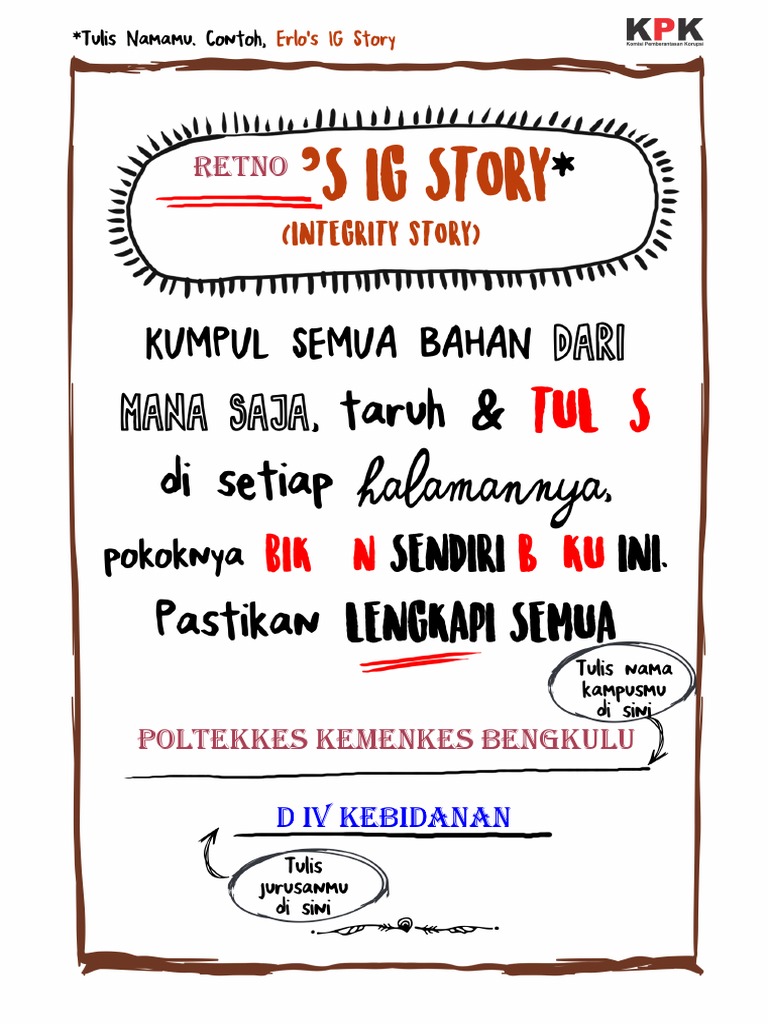 *Tulis Namamu. Contoh, Erlo's IG Story
KPK
Komisi Pemberantasan Korupsi
RETNO 'S IG STORY*
(INTEGRITY STORY)
KUMPUL SEMUA BAHAN DARI
MANA SAJA, taruh & TUL S
di setiap halamannya,
pokoknya BIK N SENDIRI B KU INI.
Pastikan LENGKAPI SEMUA
Tulis nama
kampusmu
di sini
POLTEKKES KEMENKES BENGKULU
D IV KEBIDANAN
Tulis
jurusanmu
di sini